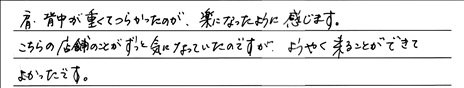 肩・背中が重くてつらかったのが、楽になったように感じます。
こちらの店舗のことがずっと気になっていたのですが、ようやく来ることができて
よかったです。